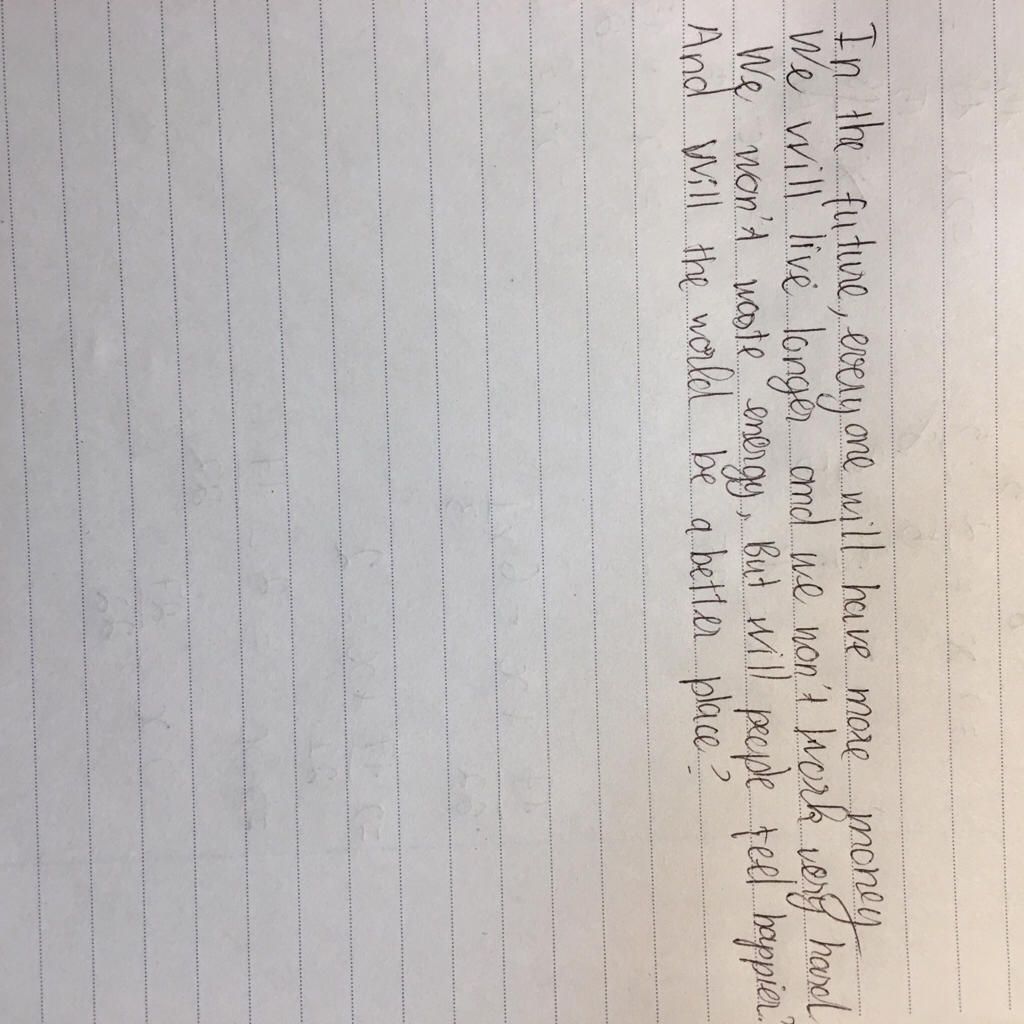 In the future, everyone will have more money
We will live longer and we won't work very hard
We won't waste energy, But will people feel happier?
And Will the world be a better place?